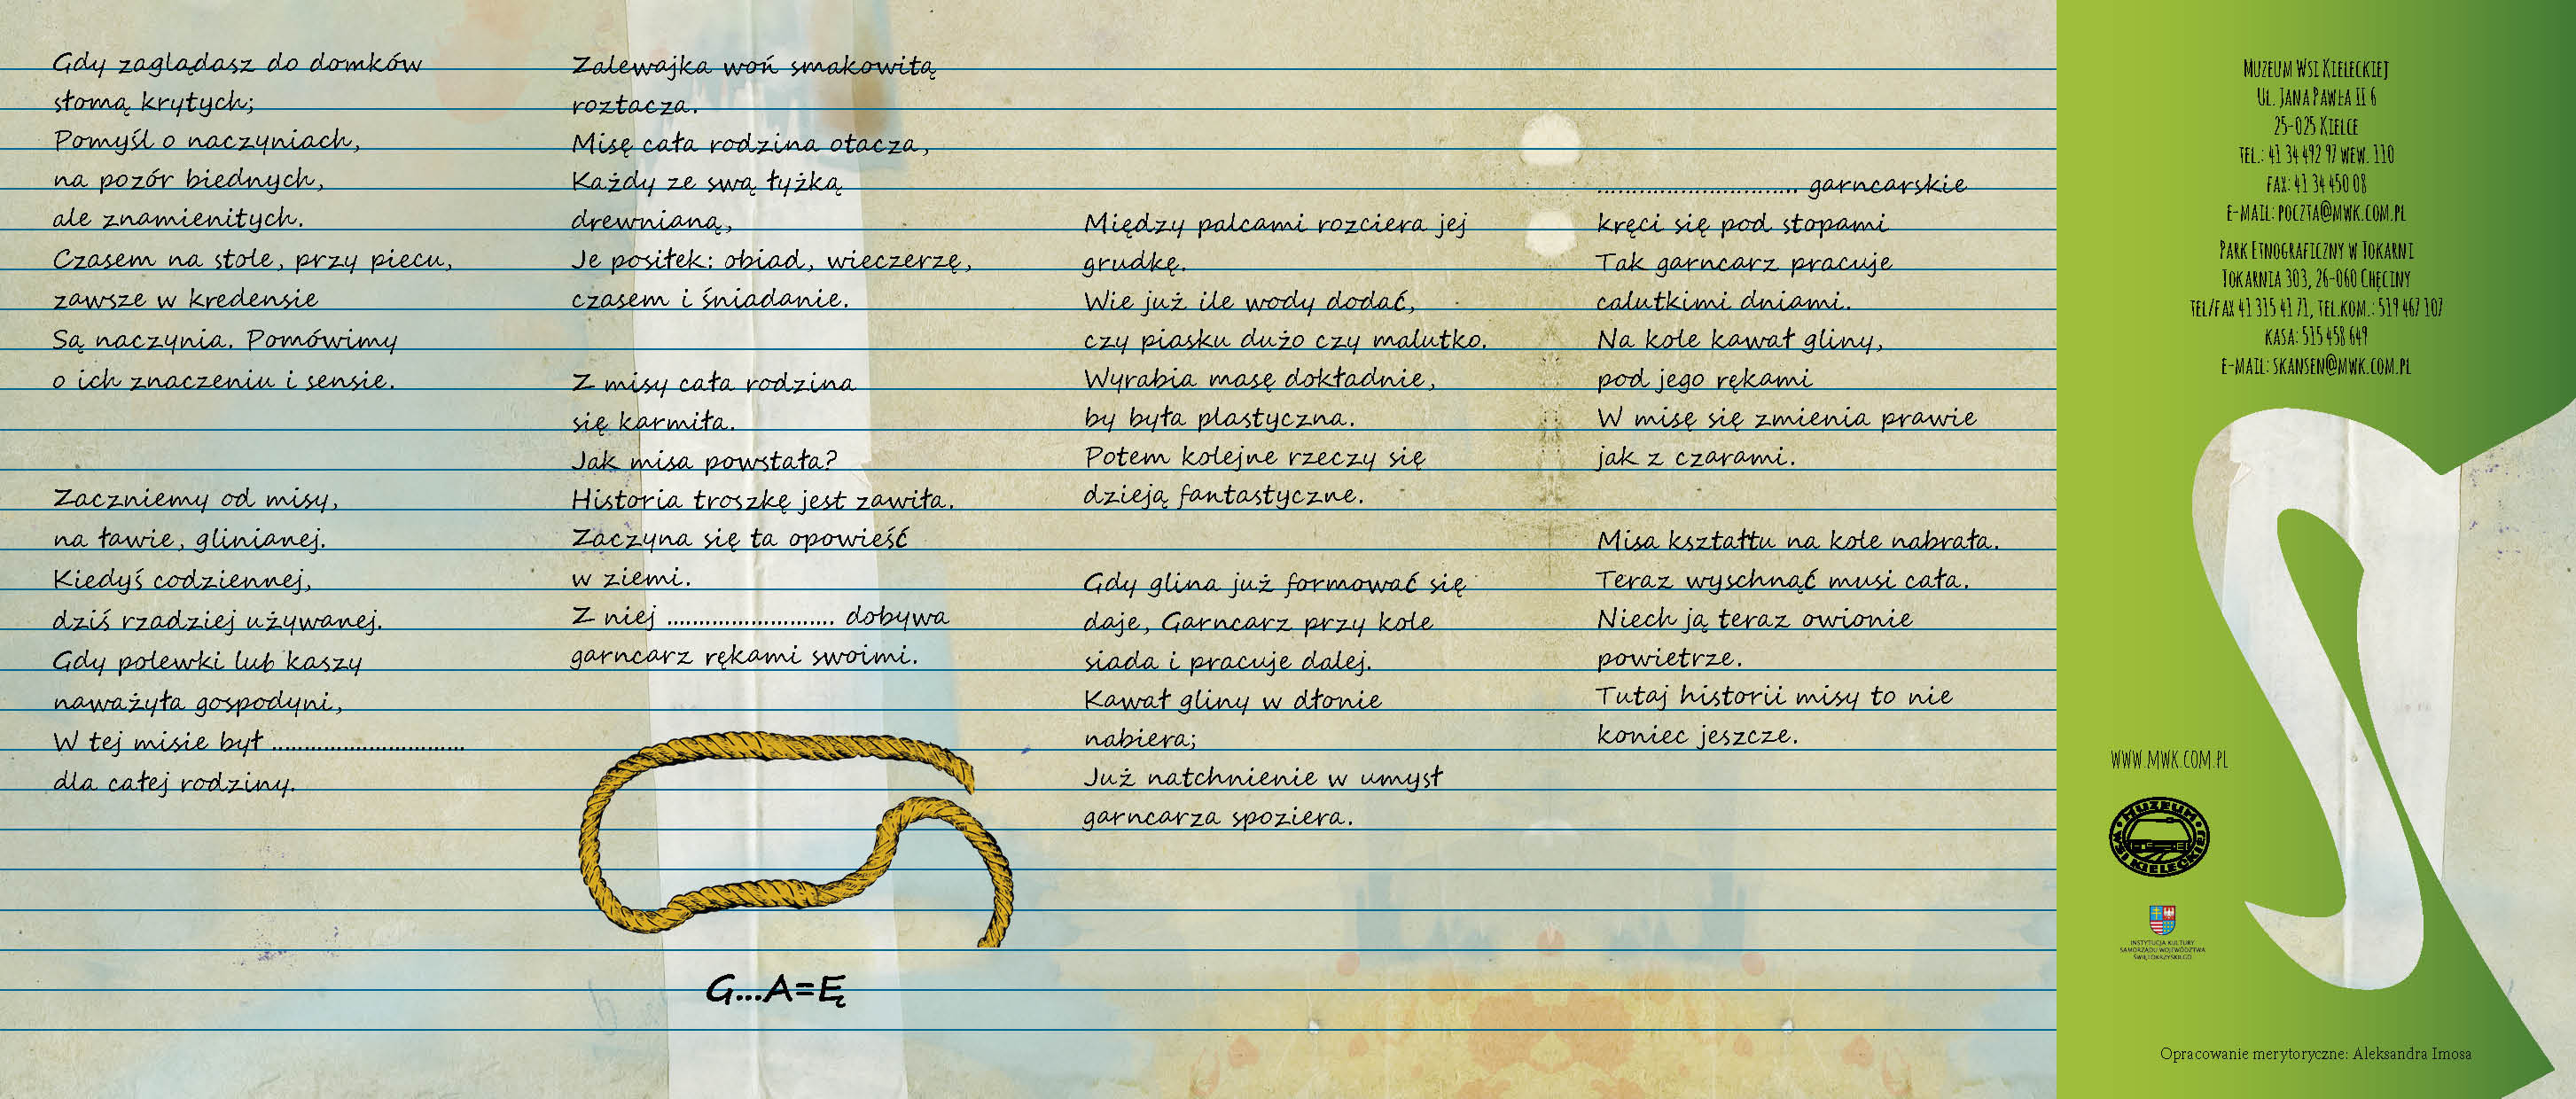 Gdy zaglądasz do domków
słomą krytych;
Pomyśl o naczyniach,
na pozór biednych,
ale znamienitych.
Czasem na stole, przy piecu,
zawsze w kredensie
Są naczynia. Pomówimy
o ich znaczeniu i sensie.
Zaczniemy od misy,
na ławie, glinianej.
Kiedyś codziennej,
dziś rzadziej używanej.
Gdy polewki lub kaszy
naważyła gospodyni,
W tej misie był ..............................
dla całej rodziny.
Zalewajka woń smakowitą
roztacza.
Misę cała rodzina otacza,
Każdy ze swą łyżką
drewnianą,
Je posiłek: obiad, wieczerzę,
czasem i śniadanie.
Z misy cała rodzina
się karmiła.
Jak misa powstała?
Historia troszkę jest zawiła.
Zaczyna się ta opowieść
w ziemi.
Z niej .......................... dobywa
garncarz rękami swoimi.
G...A=Ę
Między palcami rozciera jej
grudkę.
Wie już ile wody dodać,
czy piasku dużo czy malutko.
Wyrabia masę dokładnie,
by była plastyczna.
Potem kolejne rzeczy się
dzieją fantastyczne.
Gdy glina już formować się
daje, Garncarz przy kole
siada i pracuje dalej.
Kawał gliny w dłonie
nabiera;
Już natchnienie w umysł
garncarza spoziera.
............................... garncarskie
kręci się pod stopami
Tak garncarz pracuje
calutkimi dniami.
Na kole kawał gliny,
pod jego rękami
W misę się zmienia prawie
jak z czarami.
Misa kształtu na kole nabrała.
Teraz wyschnąć musi cała.
Niech ją teraz owionie
powietrze.
Tutaj historii misy to nie
koniec jeszcze.
Muzeum Wsi Kieleckiej
Ul. Jana Pawła II 6
25-025 Kielce
tel.: 41 34 492 97 wew. 110
fax: 41 34 450 08
e-mail: poczta@mwk.com.pl
Park Etnograficzny w Tokarni
Tokarnia 303, 26-060 Chęciny
tel/fax 41 315 41 71, tel.kom.: 519 467 107
kasa: 515 458 649
e-mail: skansen@mwk.com.pl
www.mwk.com.pl
MUZEUM
WSI KIELECKIEJ
INSTYTUCJA KULTURY
SAMORZĄDU WOJEWÓDZTWA
ŚWIĘTOKRZYSKIEGO
Opracowanie merytoryczne: Aleksandra Imosa